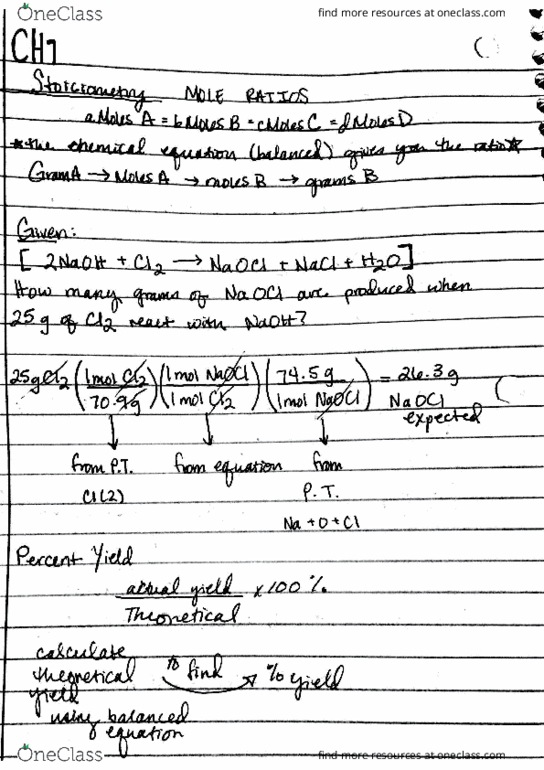 OneClass find more resources at oneclass.com
CH7
Stoiciometry MOLE RATIOS
a Moles A = b Moles B = c Moles C = d Moles D
*the chemical equation (balanced) gives you the ratio*
Gram A → Moles A → moles B → grams B
Given:
[ 2NaOH + Cl2 → NaOCl + NaCl + H2O ]
How many grams of NaOCl are produced when
25 g of Cl2 react with NaOH?
25g Cl2 (1mol Cl2 / 70.9g) (1mol NaOCl / 1mol Cl2) (74.5 g / 1mol NaOCl) = 26.3 g
NaOCl
expected
from P.T. from equation from
Cl(2) P.T.
Na + O + Cl
Percent Yield
actual yield x 100 %
Theoretical
calculate
theoretical to find % yield
yield
using balanced
equation
OneClass find more resources at oneclass.com